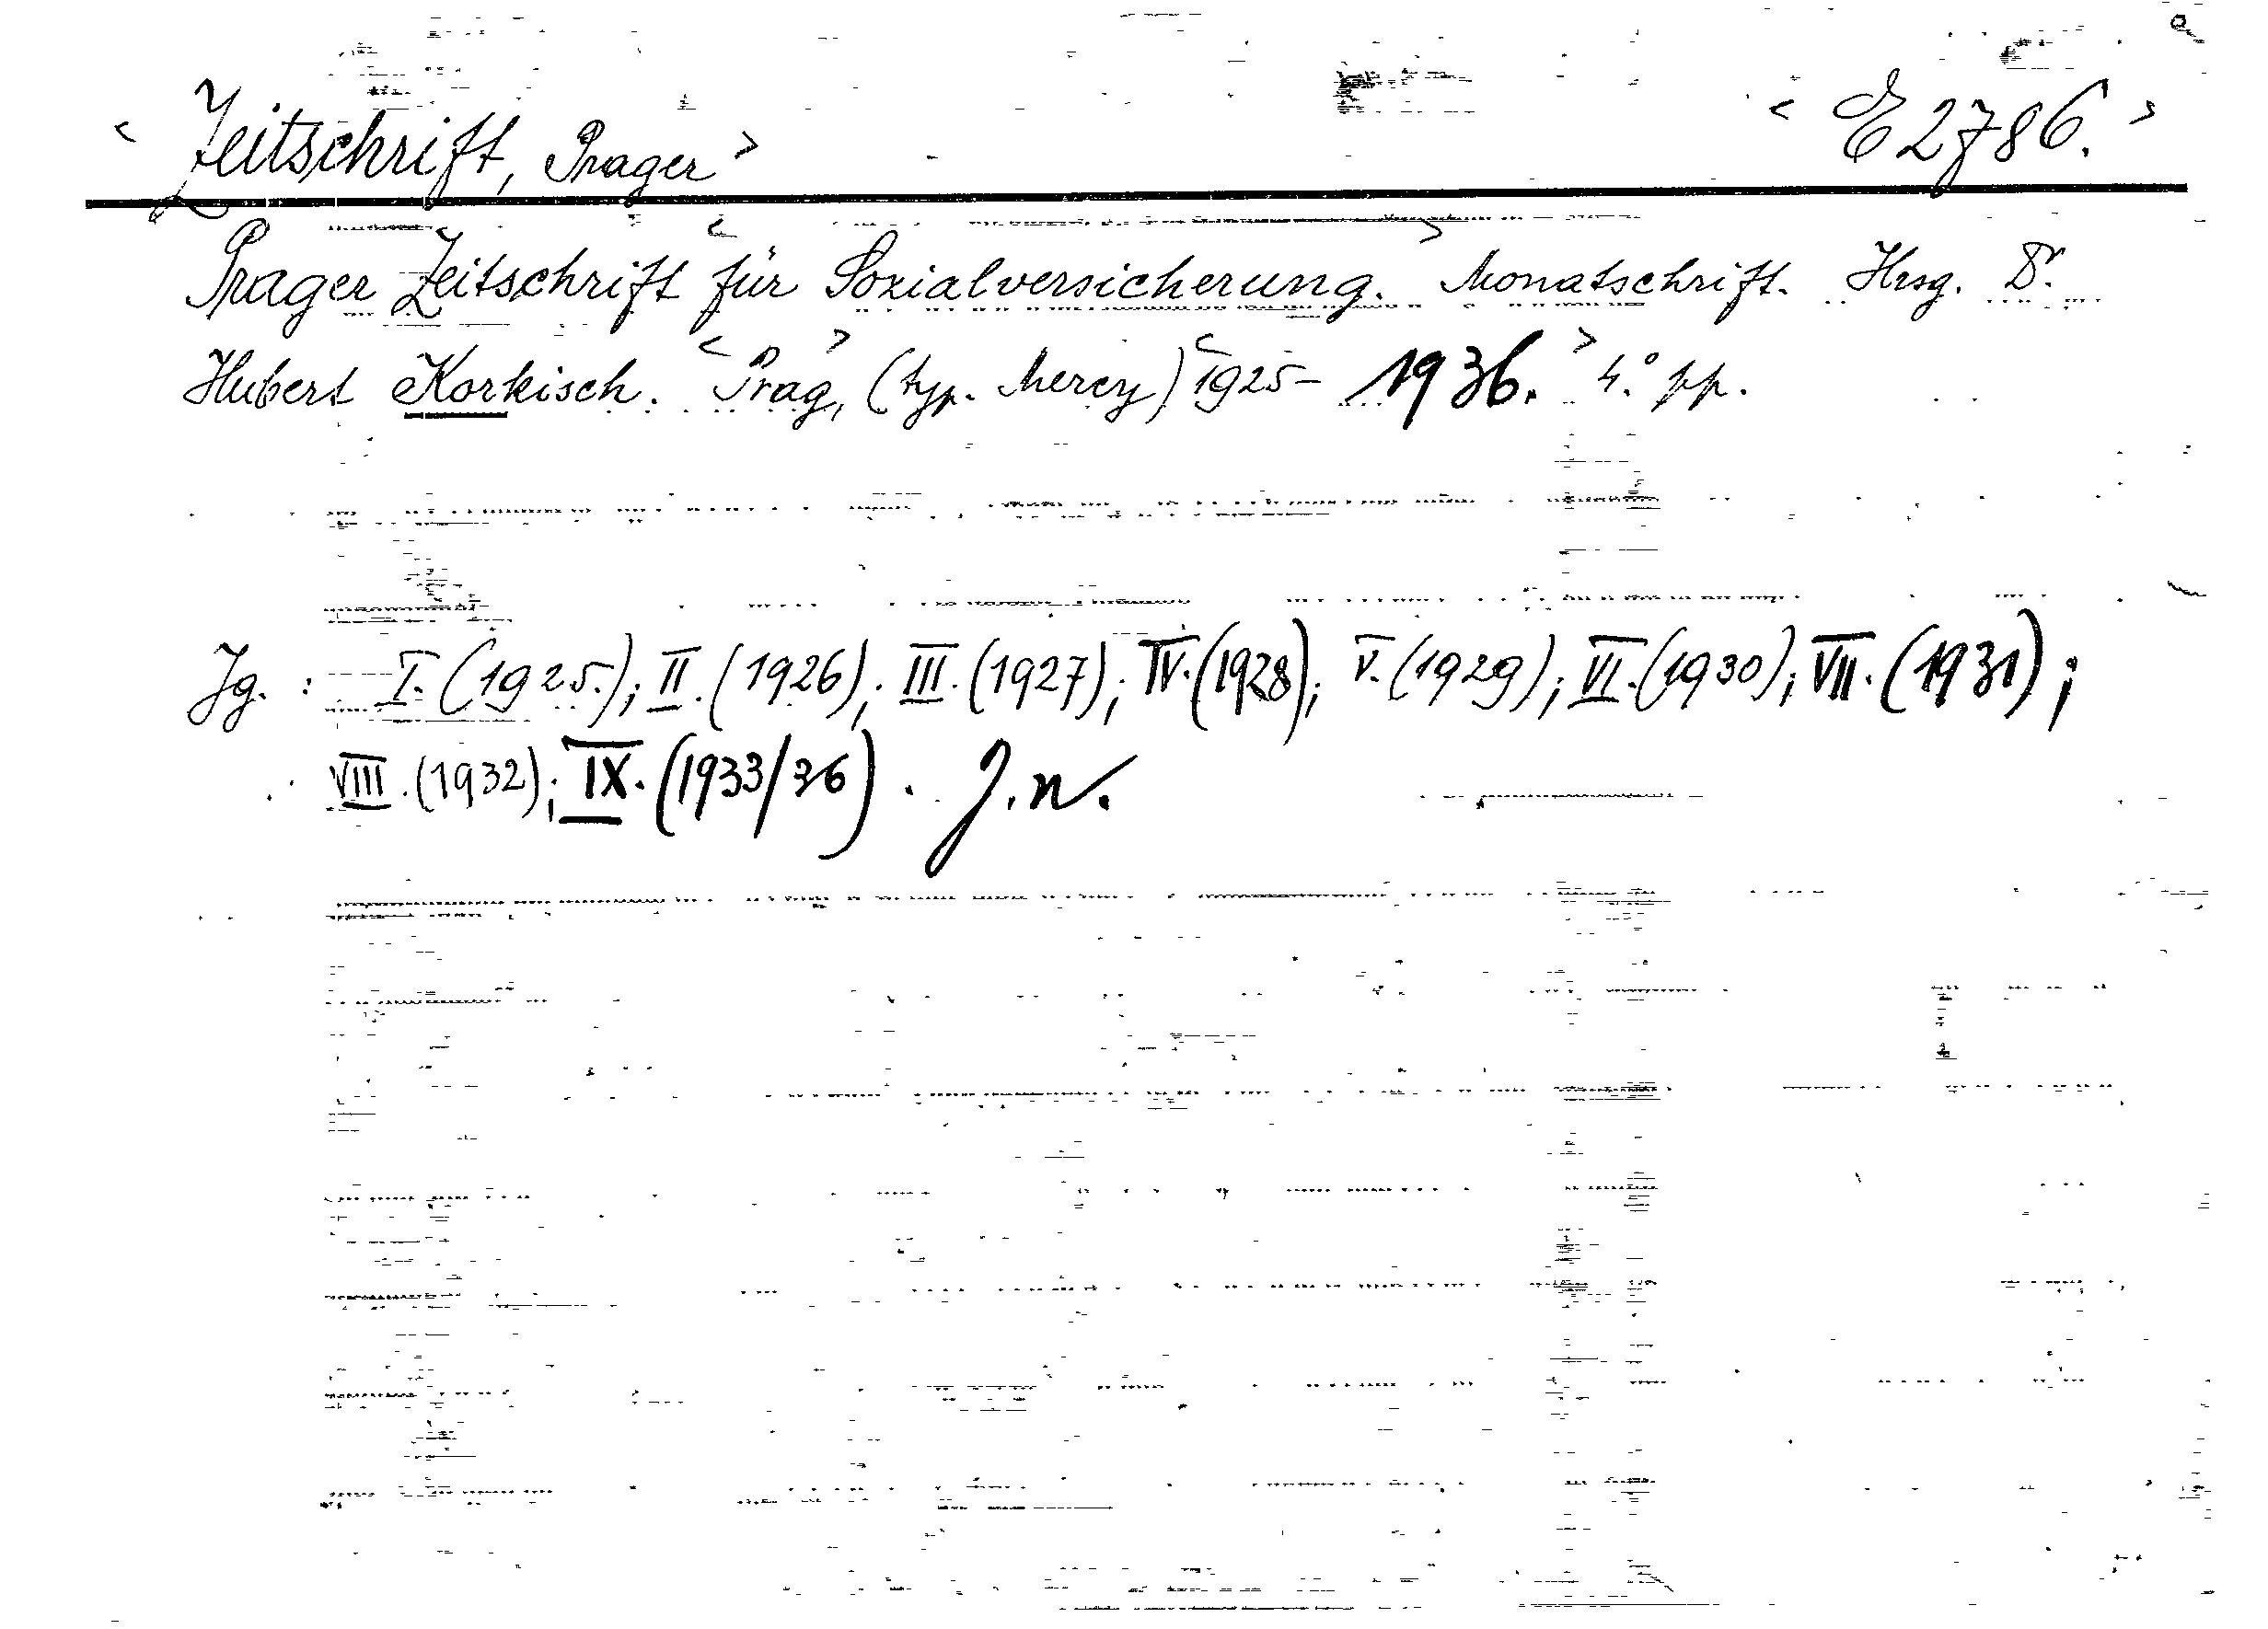 < Zeitschrift, Prager > < E 2786. >
Prager Zeitschrift < für Sozialversicherung. > Monatschrift. Hrsg. Dr.
Hubert Korkisch. < Prag, > (typ. Mercy) < 1925- 1936. > 4.° pp.
Jg. : I. (1925.); II. (1926); III. (1927); IV. (1928); V. (1929); VI. (1930); VII. (1931);
VIII. (1932); IX. (1933/36). J. n.